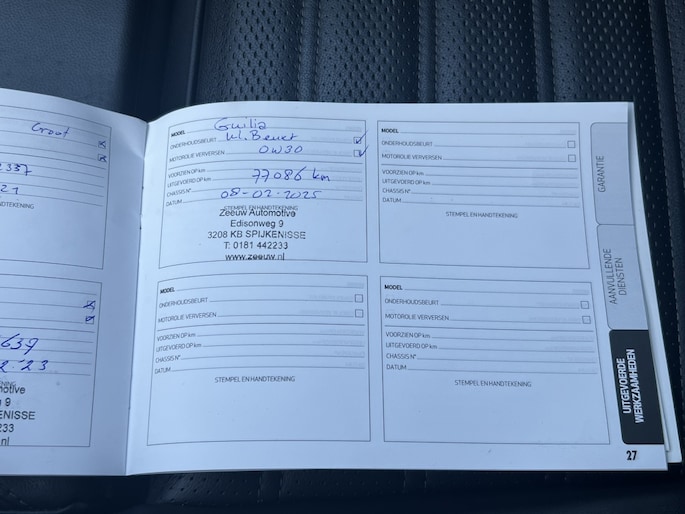 Groot
2337
21
DTEKENING
639
2-'23
ENING
motive
g 9
ENISSE
233
nl
Guilia
MODEL
ONDERHOUDSBEURT kl. Beurt
MOTOROLIE VERVERSEN 0W30
VOORZIEN OP km
UITGEVOERD OP km 77086 km
CHASSIS N°
DATUM 08-02-2025
STEMPEL EN HANDTEKENING
Zeeuw Automotive
Edisonweg 9
3208 KB SPIJKENISSE
T: 0181 442233
www.zeeuw.nl
MODEL
ONDERHOUDSBEURT
MOTOROLIE VERVERSEN
VOORZIEN OP km
UITGEVOERD OP km
CHASSIS N°
DATUM
STEMPEL EN HANDTEKENING
MODEL
ONDERHOUDSBEURT
MOTOROLIE VERVERSEN
VOORZIEN OP km
UITGEVOERD OP km
CHASSIS N°
DATUM
STEMPEL EN HANDTEKENING
MODEL
ONDERHOUDSBEURT
MOTOROLIE VERVERSEN
VOORZIEN OP km
UITGEVOERD OP km
CHASSIS N°
DATUM
STEMPEL EN HANDTEKENING
GARANTIE
AANVULLENDE
DIENSTEN
UITGEVOERDE
WERKZAAMHEDEN
27